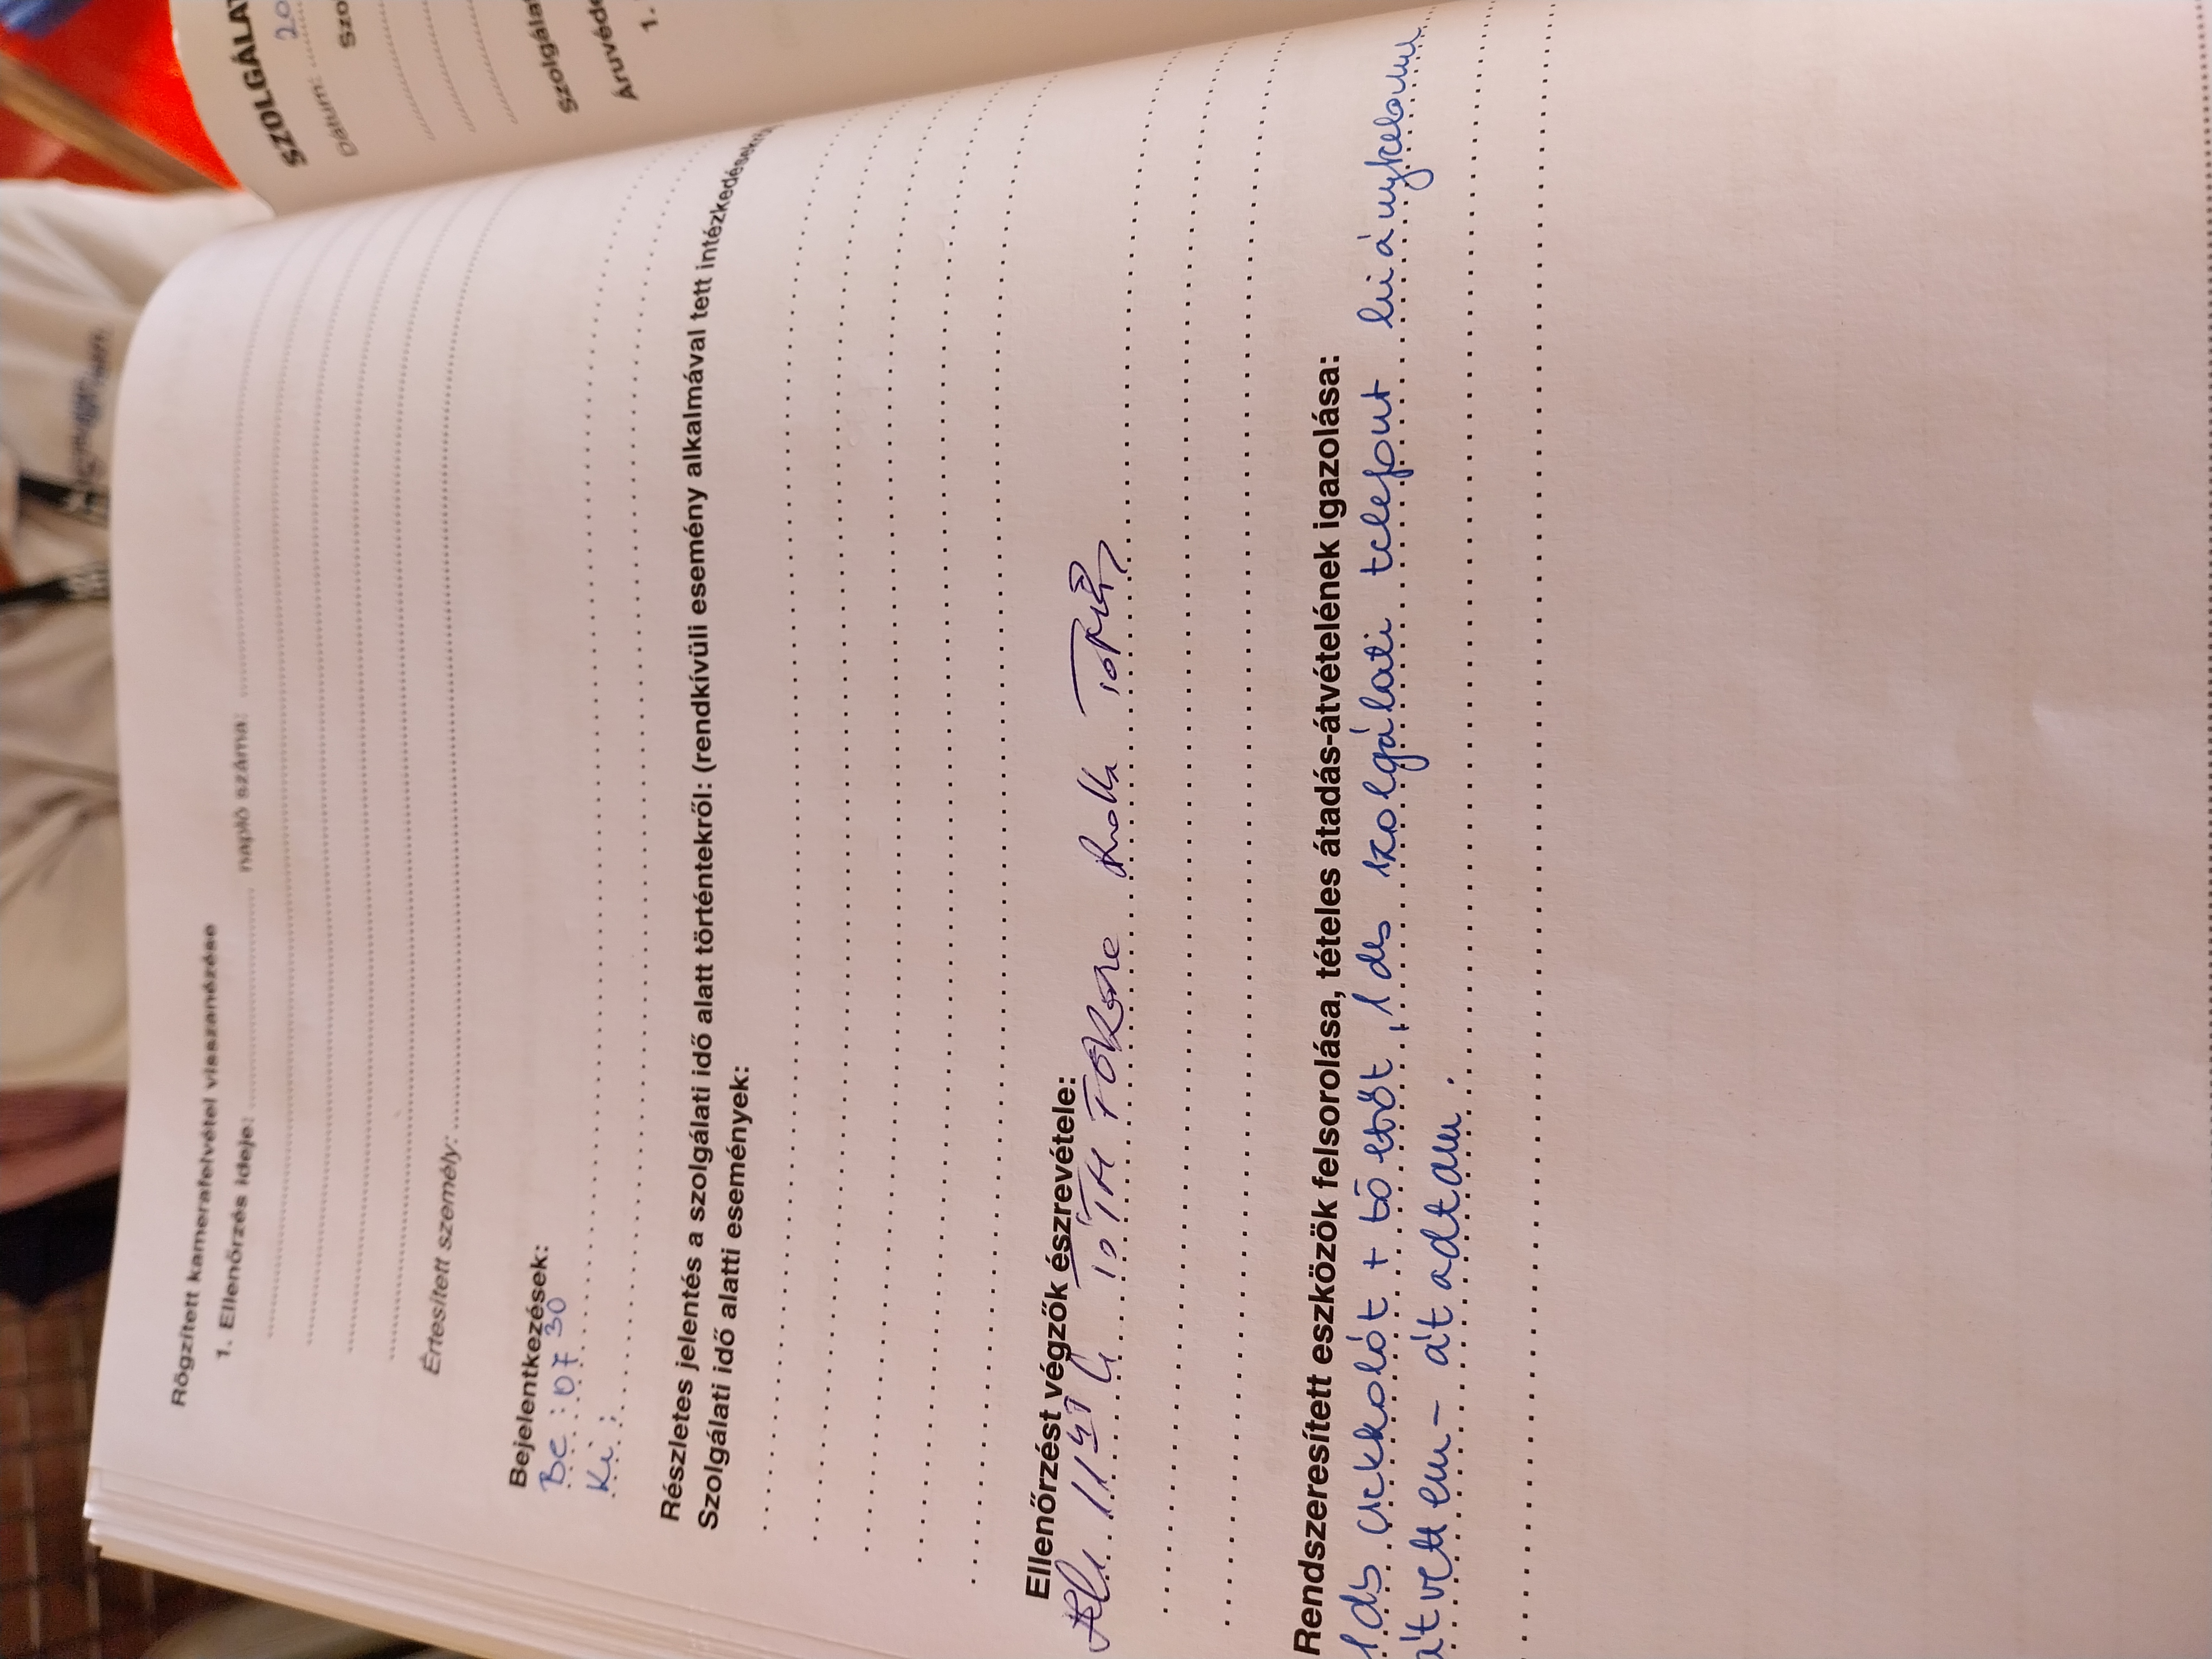 Rögzített kamerafelvétel visszanézése
1. Ellenőrzés ideje: napló száma:
Értesített személy:
Bejelentkezések:
Be: 07 30
Ki:
Részletes jelentés a szolgálati idő alatt történtekről: (rendkívüli esemény alkalmával tett intézkedések
Szolgálati idő alatti események:
Ellenőrzést végzők észrevétele:
TÓTH
Rendszeresített eszközök felsorolása, tételes átadás-átvételének igazolása:
1 db cickkolót + töltőt, 1 db szolgálati telefont hiánytalanul
átvettem - átadtam.
SZOLGÁLAT
Dátum: 20
Szo
Szolgálat
Áruvéde
1.